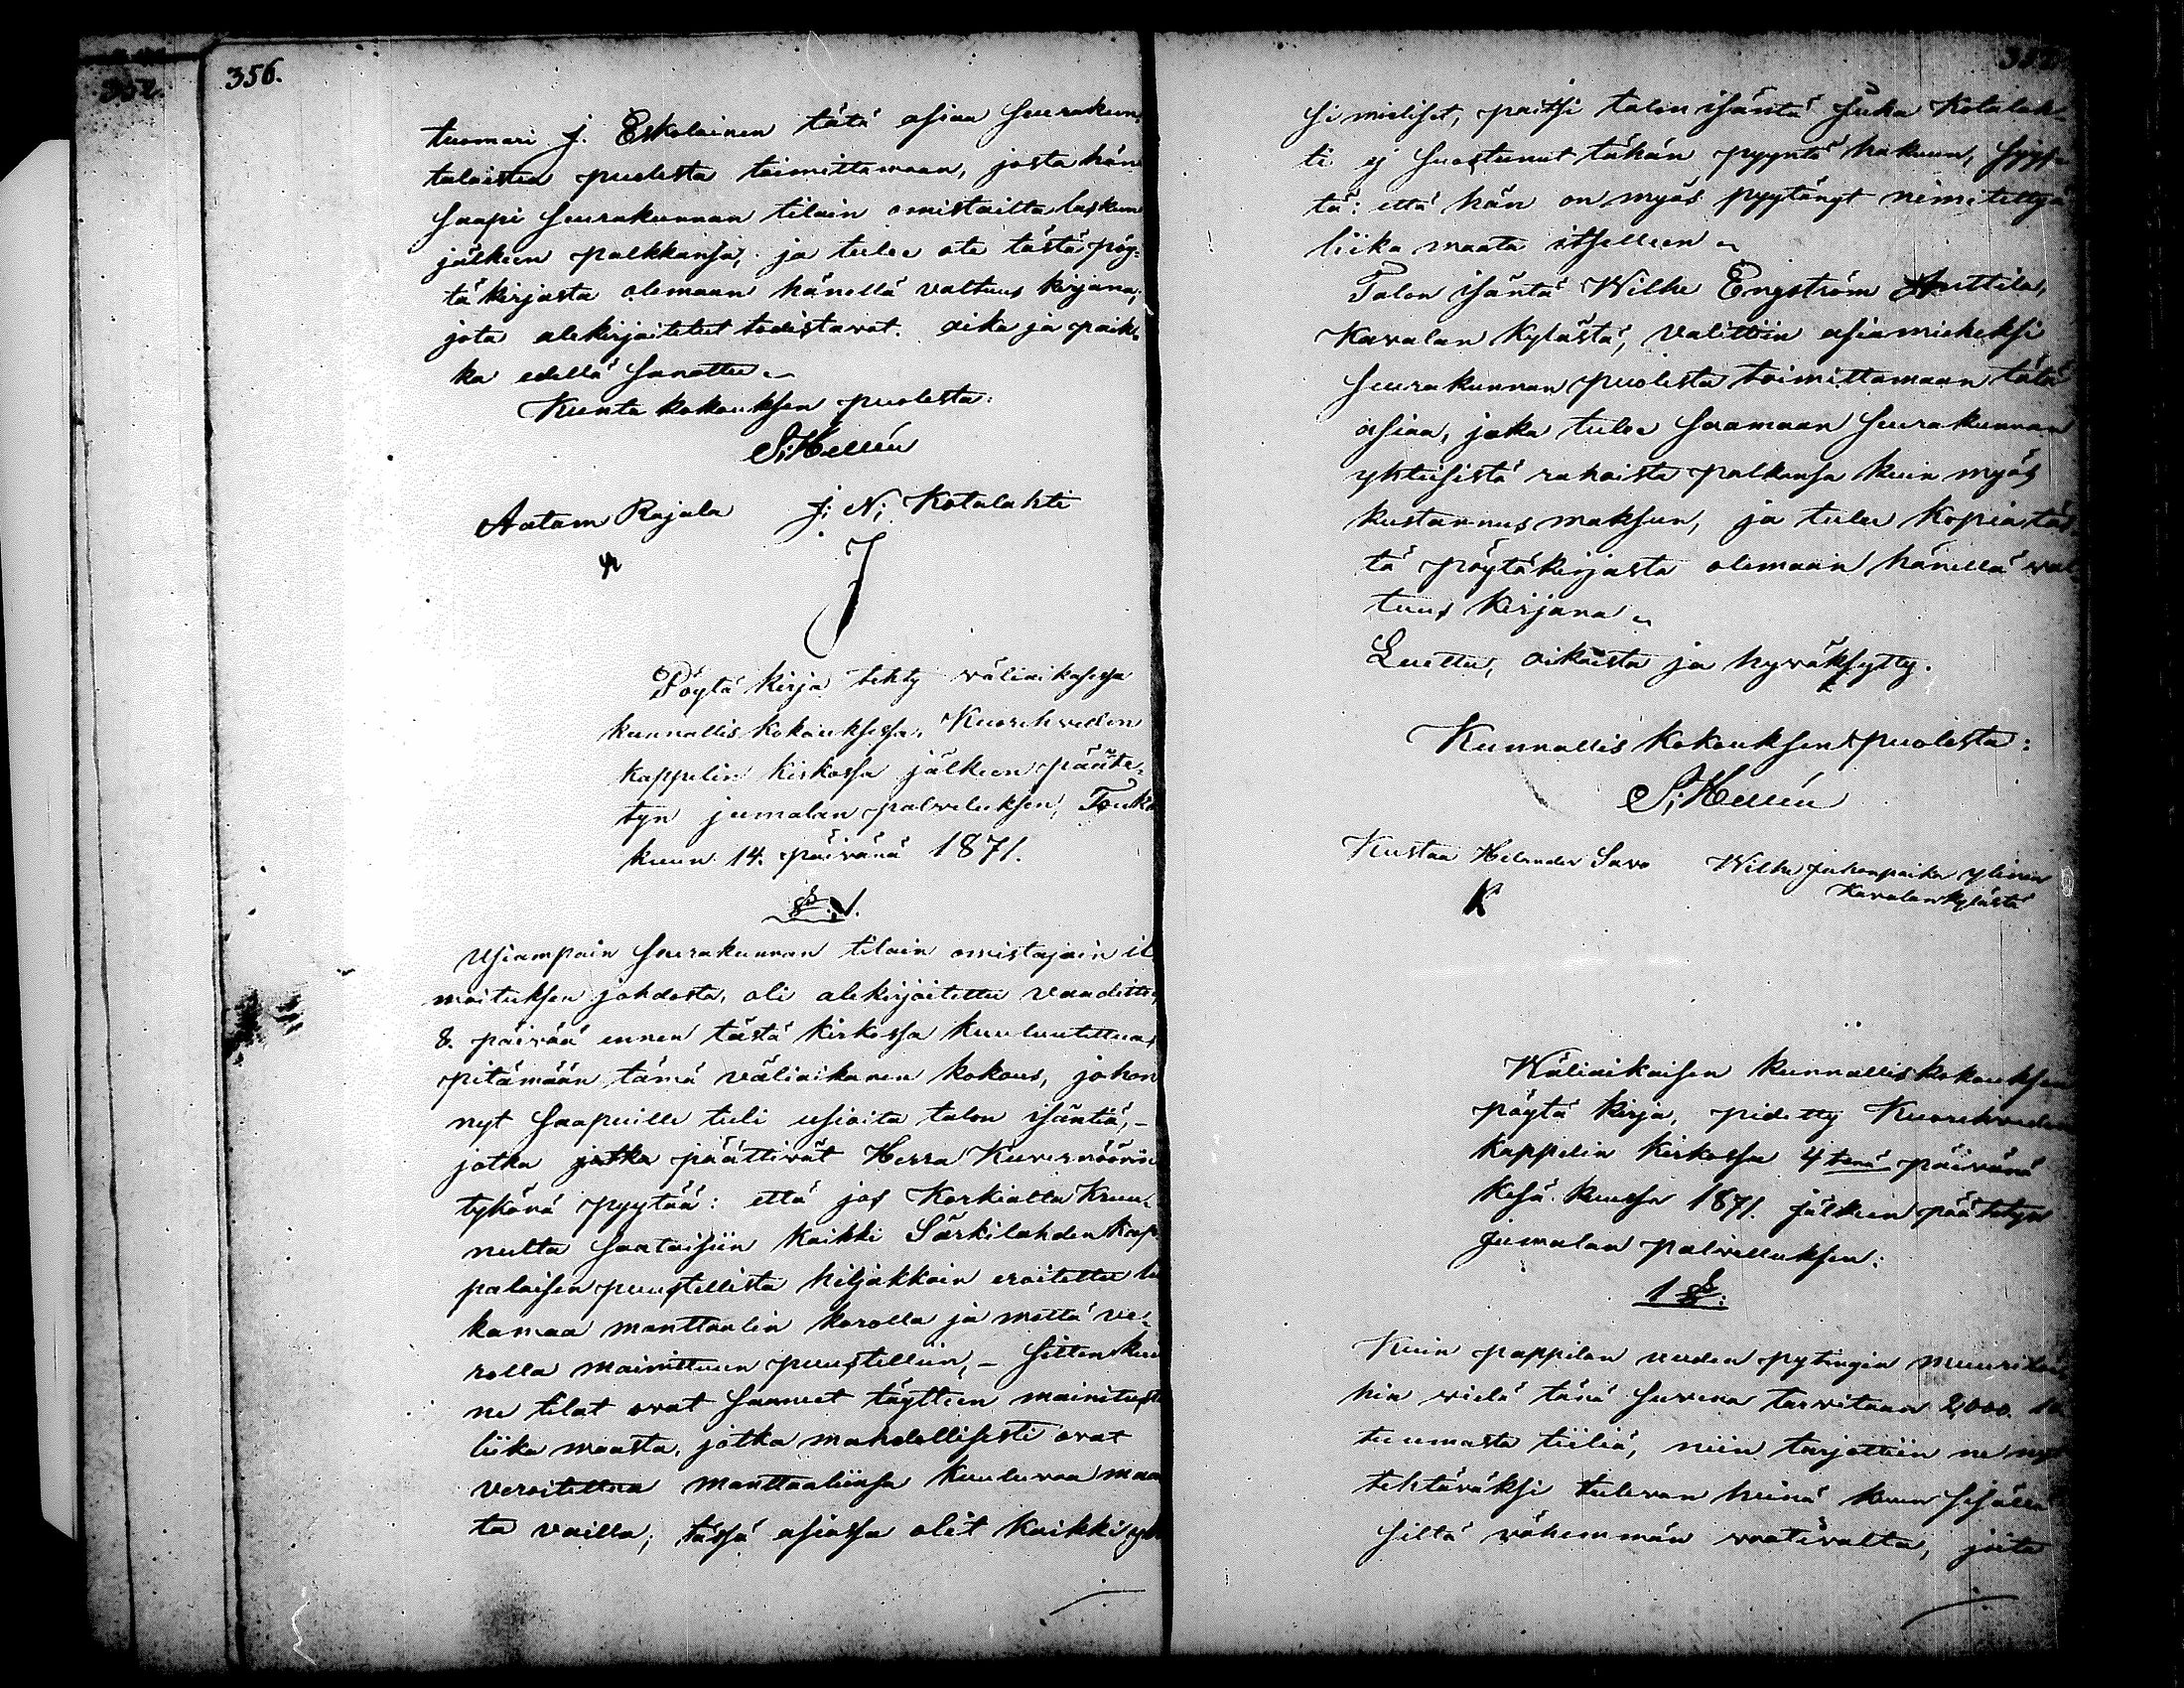 356.
tuomari J. Eskolainen tätä asiaa seurakun-
talaisten puolesta toimittamaan, josta hän
saapi seurakunnan tilain omistailta laskun
jälkeen palkkansa, ja tulee ote tästä pöy-
täkirjasta olemaan hänellä valtuus kirjana,
jota alekirjoitetut todistavat. aika ja paik-
ka edellä sanottu.
Kunta kokouksen puolesta:
S; Hellén
Aatam Rajala J; N; Kotalahti
J
Pöytä kirja tehty väliaikasessa
kunnallis kokouksessa, Kuorehveden
kappelin kirkossa jälkeen pääte-
tyn jumalan palveluksen, Touko
kuun 14. päivänä 1871.
§. 1.
Usiampain seurakunnan tilain omistajain il-
moituksen johdosta, oli alekirjoitettu vaadittu,
8. päivää ennen tästä kirkossa kuulutettua,
pitämään tämä väliaikanen kokous, johon
nyt saapuille tuli usioita talon isäntiä, –
jotka jotka päättivät Herra Kuvernöörin
tykönä pyytää: että jos Korkialta Kruu-
nulta saataisiin kaikki Särkilahden kap-
palaisen puustellista hiljakkoin eroitettu lii
kamaa manttaalin korolla ja mettä ve-
rolla mainittuun puustelliin, – sitten kuin
ne tilat ovat saaneet täytteen mainitusta
liika maasta, jotka mahdollisesti ovat
veroitettua manttaaliinsa kuuluvaa maa
ta vailla; tässä asiassa olit kaikki yh
si mieliset, paitsi talon isäntä Juha Kotalah-
ti ej suostunut tähän pyyntö hakuun, syys-
tä: että hän on myös pyytänyt nimitettyä
liika maata itselleen
Talon isäntä Wilhe Engström Anttila,
Kavalan kylästä, valittiin asiamieheksi
seurakunnan puolesta toimittamaan tätä
asiaa, joka tulee saamaan seurakunnan
yhteisistä rahoista palkansa kuin myös
kustannus maksun, ja tulee kopia täs-
tä pöytäkirjasta olemaan hänellä val-
tuus kirjana
Luettu, oikaista ja hyväksytty.
Kunnallis kokouksen puolesta:
S; Hellén
Kustaa Helander Savo Wilhe Juhanpoika ylinen
Kavalankylästä
K
Wäliaikaisen kunnallis kokouksen
pöytä kirja, pidetty Kuorehveden
kappelin kirkossa 4 tenä päivänä
Kesä kuussa 1871. jälkeen päätetyn
jumalan palvelluksen:
1 §:
Kuin pappilan uuden pytingin muuriloi
hin vielä tänä suvena tarvitaan 2,000.
tuumasta tiiliä, niin tarjottiin ne nyt
tehtäväksi tulevan heinä kuun sisällä
siltä vähemmän vaativalta, joita